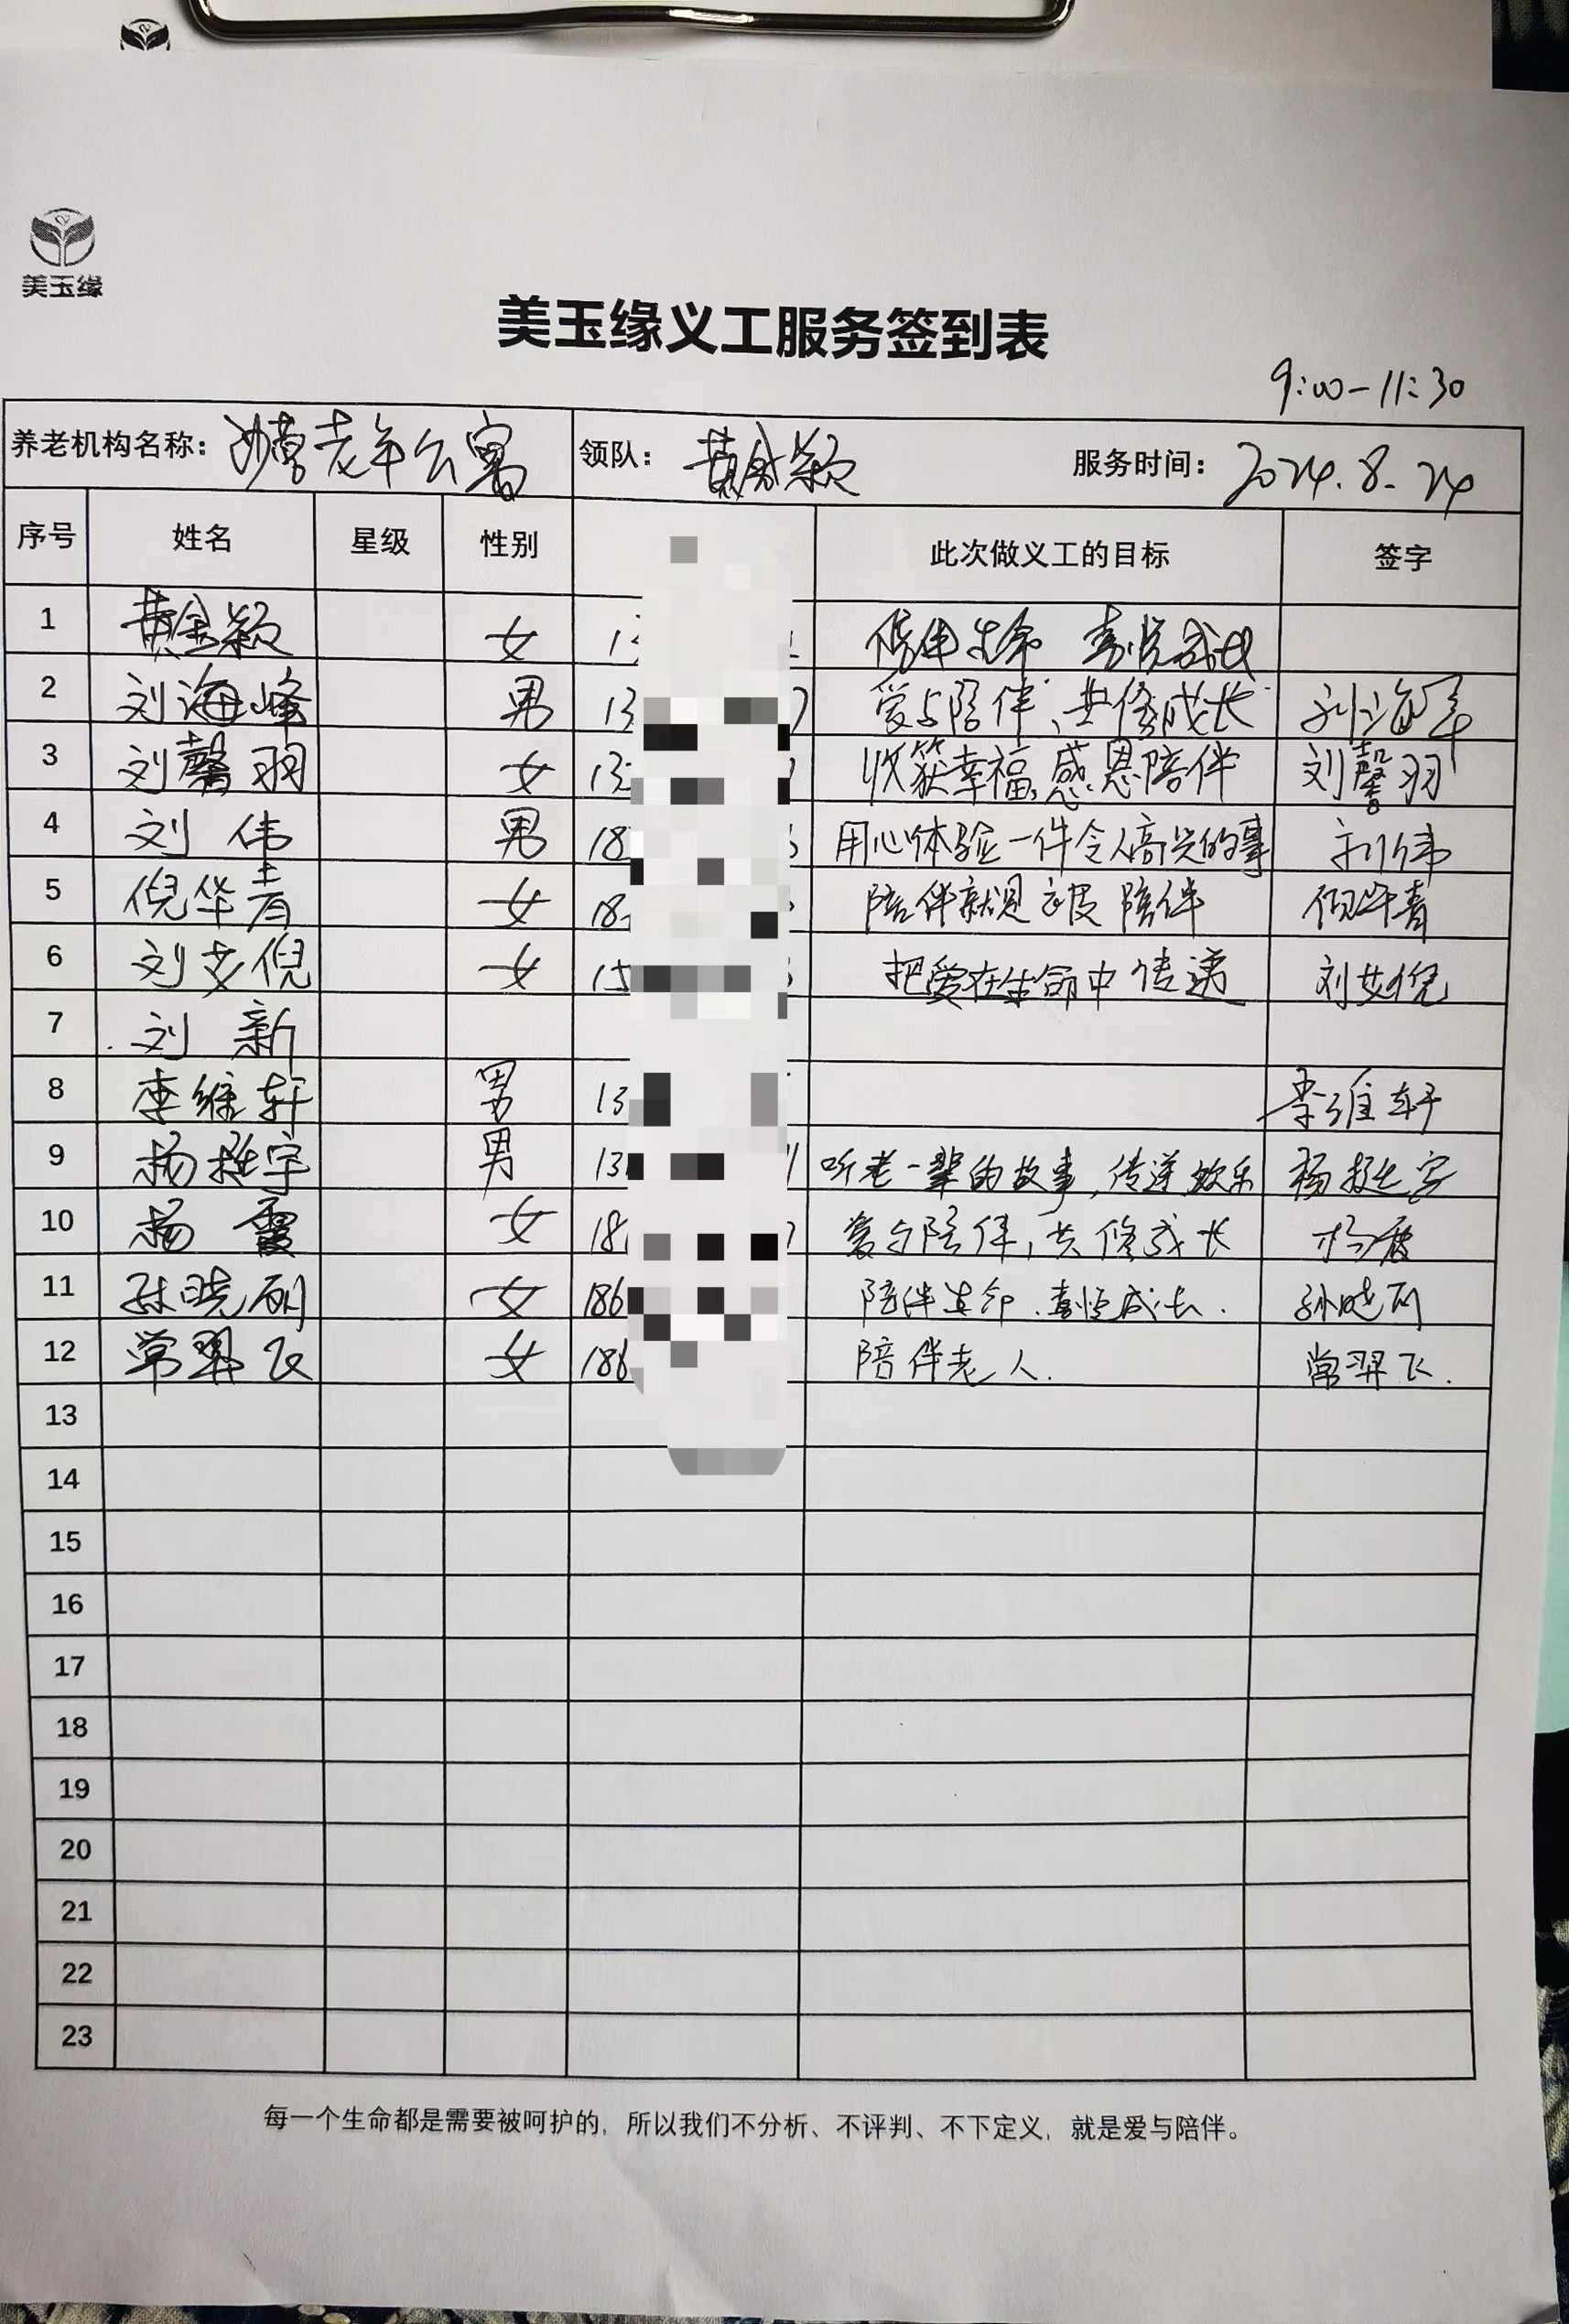 美玉缘
美玉缘义工服务签到表
9:00-11:30
养老机构名称：沙营老年公寓 领队：黄金颖 服务时间：2024.8.24
序号 姓名 星级 性别 此次做义工的目标 签字
1 黄金颖 女 陪伴生命 喜悦成长
2 刘海峰 男 13 爱与陪伴、共修成长 刘海峰
3 刘馨羽 女 13 收获幸福，感恩陪伴 刘馨羽
4 刘伟 男 18 用心体验一件令人高兴的事 刘伟
5 倪华青 女 18 陪伴就是 陪伴 倪华青
6 刘艾倪 女 15 把爱在生命中传递 刘艾倪
7 刘新
8 李维轩 男 13 李维轩
9 杨挺宇 男 13 听老一辈的故事，传递欢乐 杨挺宇
10 杨霞 女 18 爱与陪伴，共修成长 杨霞
11 孙晓 女 186 陪伴生命．喜悦成长． 孙晓
12 常羿飞 女 186 陪伴老人． 常羿飞．
13
14
15
16
17
18
19
20
21
22
23
每一个生命都是需要被呵护的，所以我们不分析、不评判、不下定义，就是爱与陪伴。